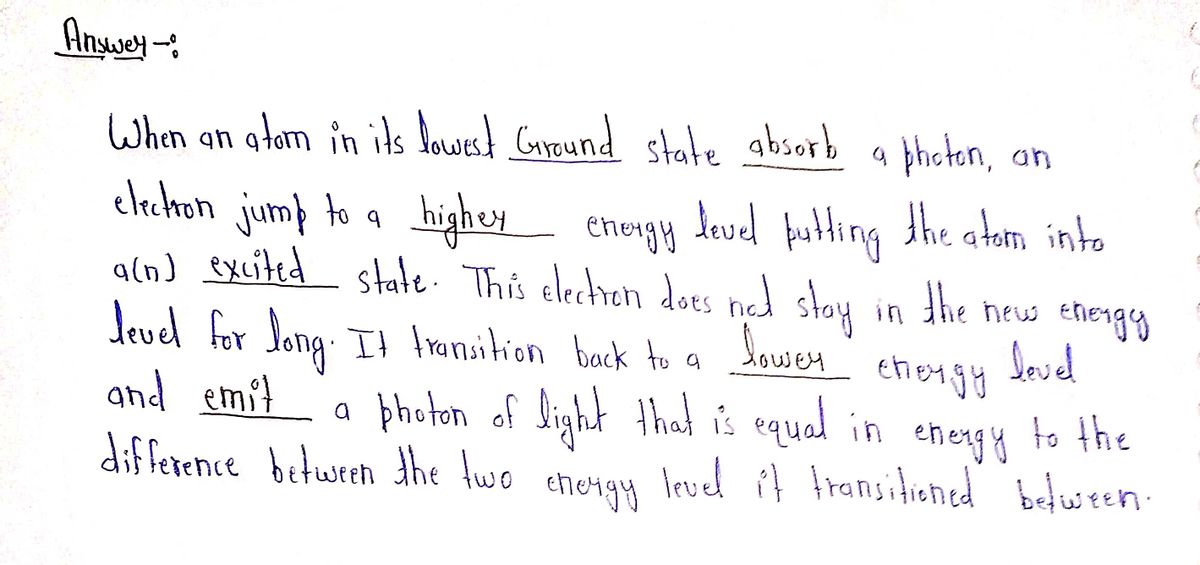 Answer -:
When an atom in its lowest Ground state absorb a photon, an
electron jump to a higher energy level putting the atom into
a(n) excited state. This electron does not stay in the new energy
level for long. It transition back to a lower energy level
and emit a photon of light that is equal in energy to the
difference between the two energy level it transitioned between.